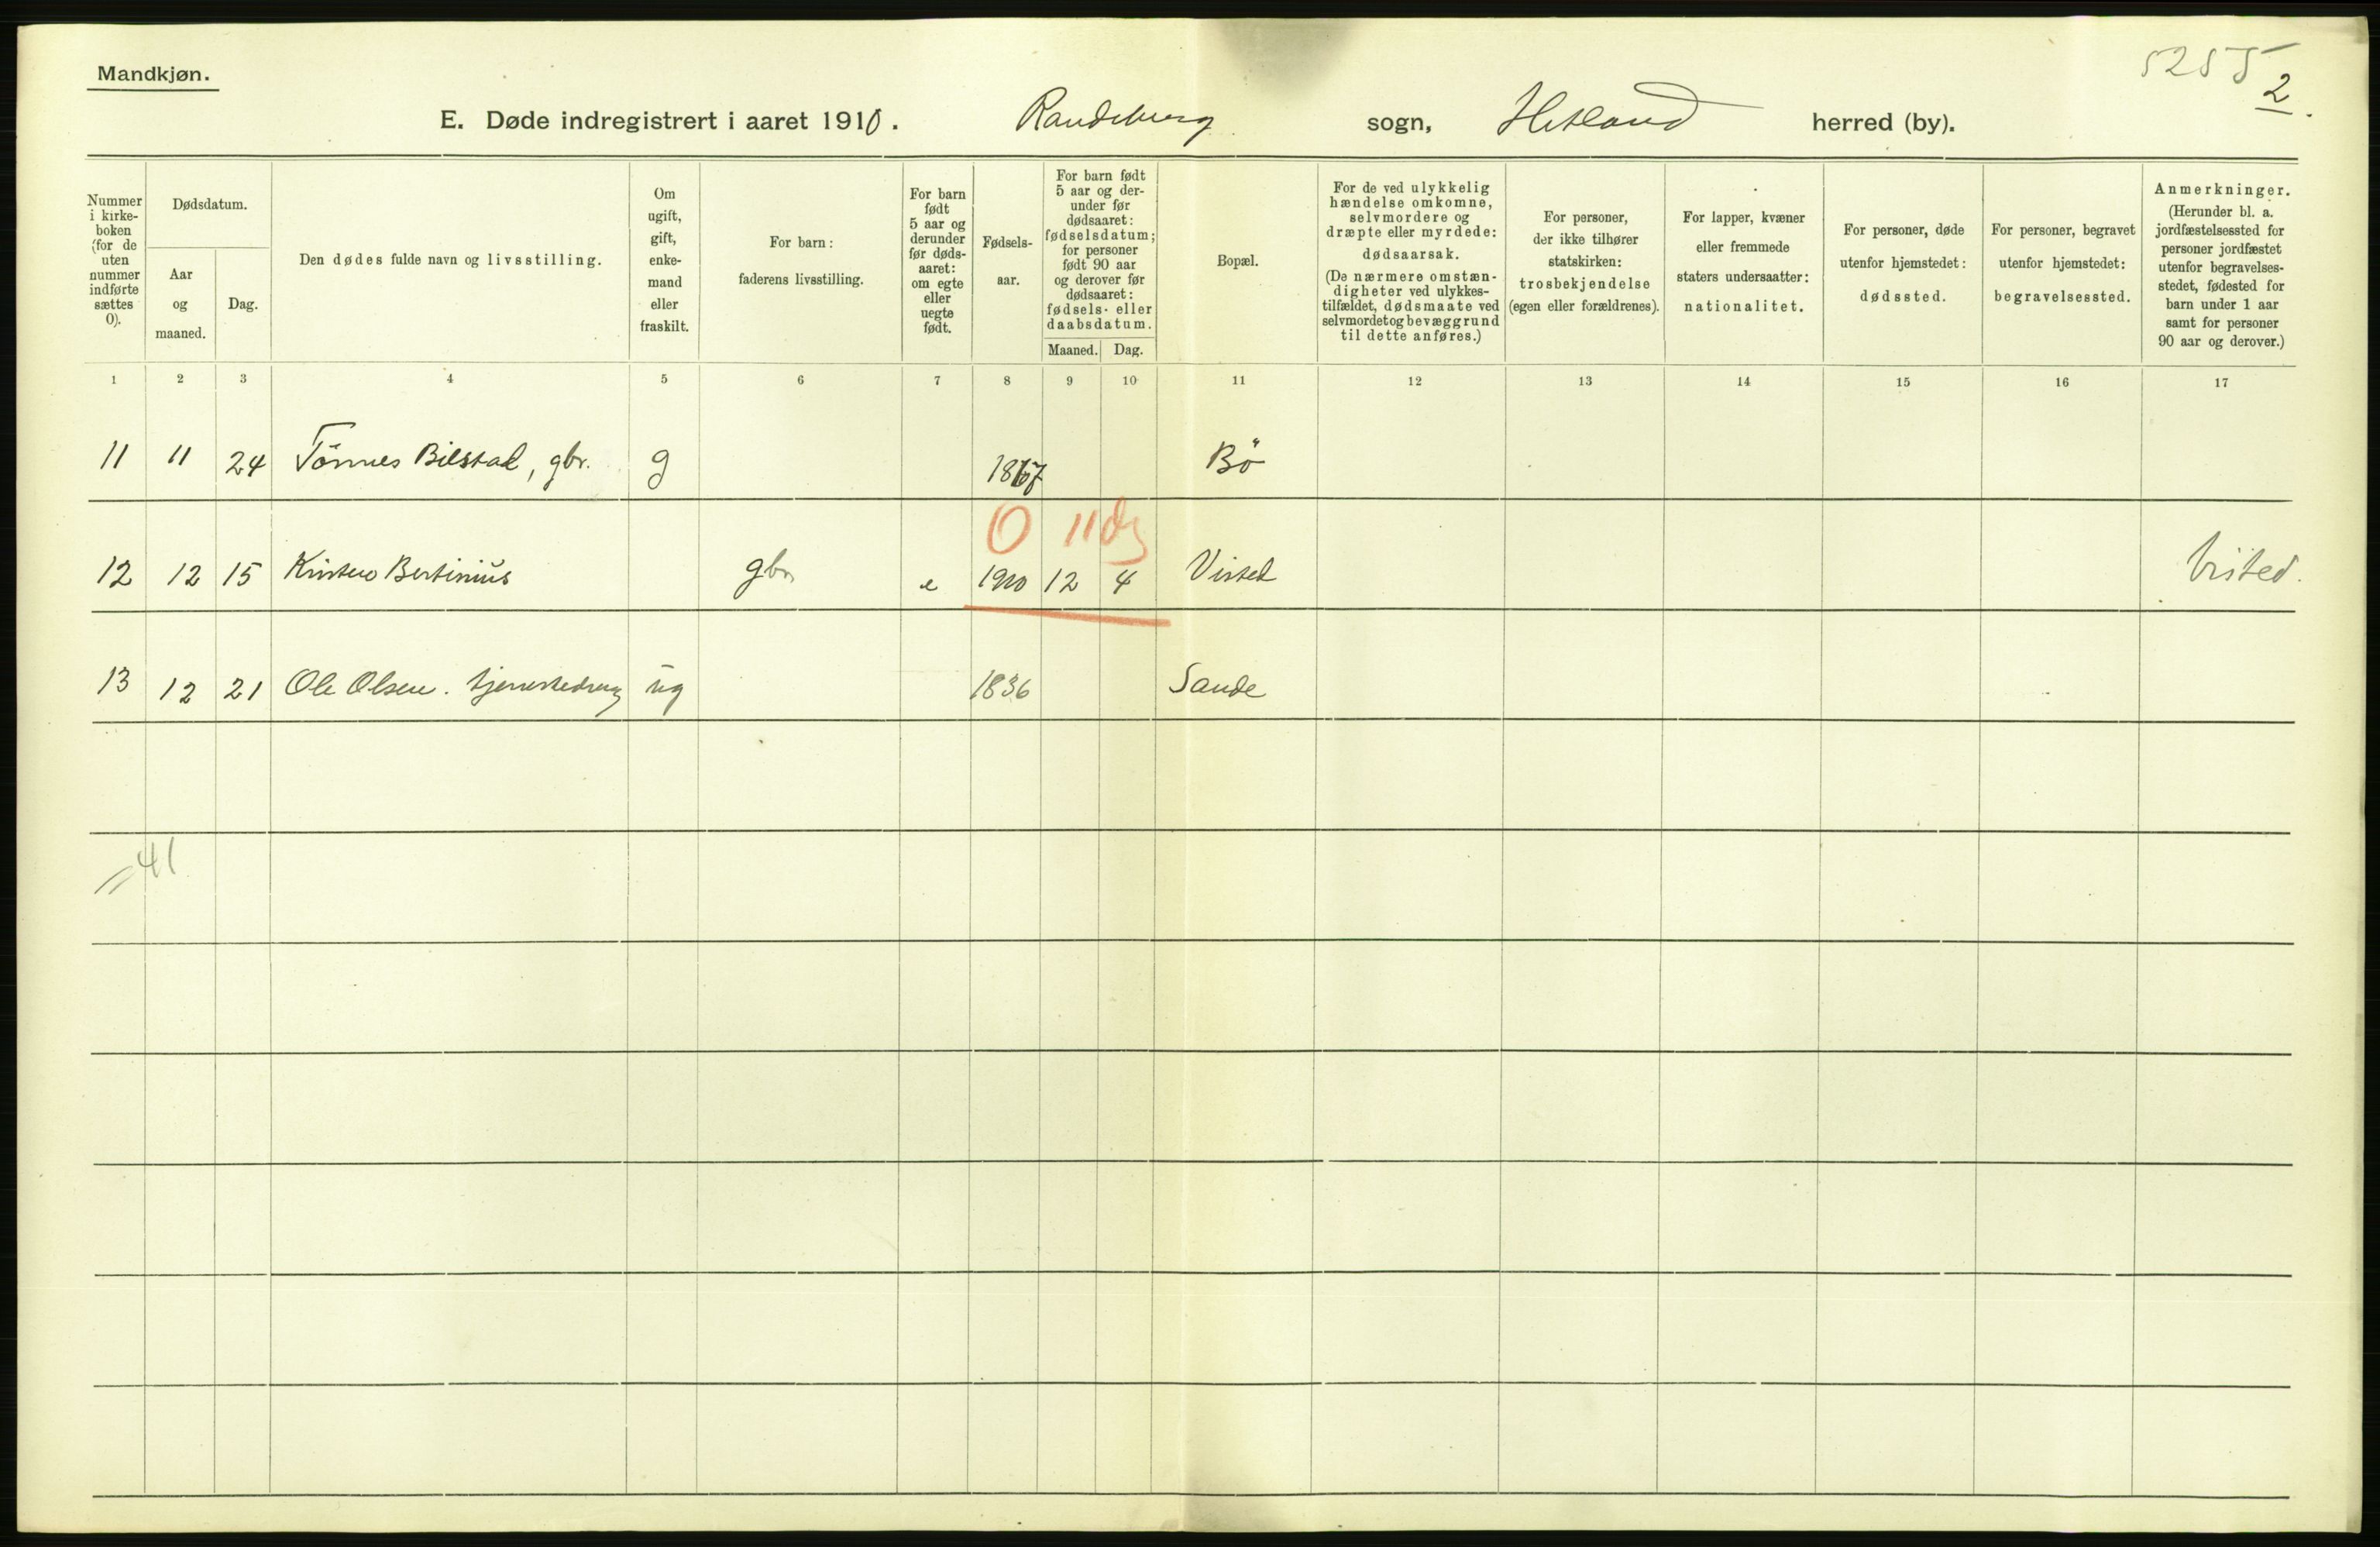 Mandkjøn.
5255
2.
E. Døde indregistrert i aaret 1910. Randeberg sogn, Hetland herred (by).
Nummer i kirke-boken (for de uten nummer indførte sættes 0).
Dødsdatum.
Aar og maaned.
Dag.
Den dødes fulde navn og livsstilling.
Om ugift, gift, enke-mand eller fraskilt.
For barn: faderens livsstilling.
For barn født 5 aar og derunder før døds-aaret: om egte eller uegte født.
Fødsels-aar.
For barn født 5 aar og der-under før dødsaaret: fødselsdatum; for personer født 90 aar og derover før dødsaaret: fødsels- eller daabsdatum.
Maaned. Dag.
Bopæl.
For de ved ulykkelig hændelse omkomne, selvmordere og dræpte eller myrdede: dødsaarsak. (De nærmere omstæn-digheter ved ulykkes-tilfældet, dødsmaate ved selvmordet og bevæggrund til dette anføres.)
For personer, der ikke tilhører statskirken: trosbekjendelse (egen eller forældrenes).
For lapper, kvæner eller fremmede staters undersaatter: nationalitet.
For personer, døde utenfor hjemstedet: dødssted.
For personer, begravet utenfor hjemstedet: begravelsessted.
Anmerkninger. (Herunder bl. a. jordfæstelsessted for personer jordfæstet utenfor begravelses-stedet, fødested for barn under 1 aar samt for personer 90 aar og derover.)
1 2 3 4 5 6 7 8 9 10 11 12 13 14 15 16 17
11 11 24 Tönnes Bilstad, gbr. g 1867 Bö
0 11 dg
12 12 15 Kristen Bertinius gbr. e 1910 12 4 Visted Visted.
13 12 21 Ole Olsen. tjenestedreng ug 1836 Sande
41